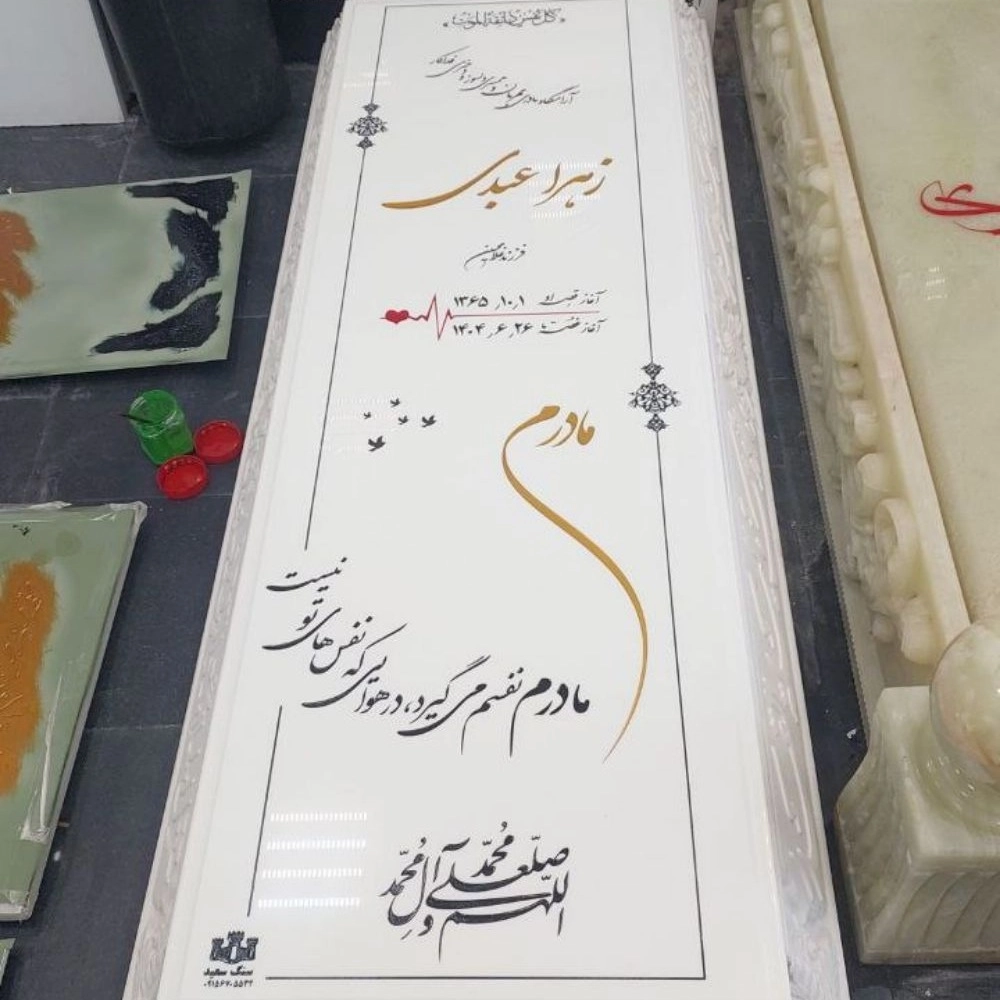 كل نفس ذائقة الموت
آرامگاه مادری مهربان و همسری دلسوز و دختری فداکار
زهرا عبدی
فرزند غلامحسین
آغاز قصه ۱ ,۱۰, ۱۳۶۵
آغاز غصه ۲۶ ,۶ ,۱۴۰۴
مادرم
مادرم نفسم می گیرد، در هوایی که نفس های تو نیست
اللهم صل علی محمد و آل محمد
سنگ سعید